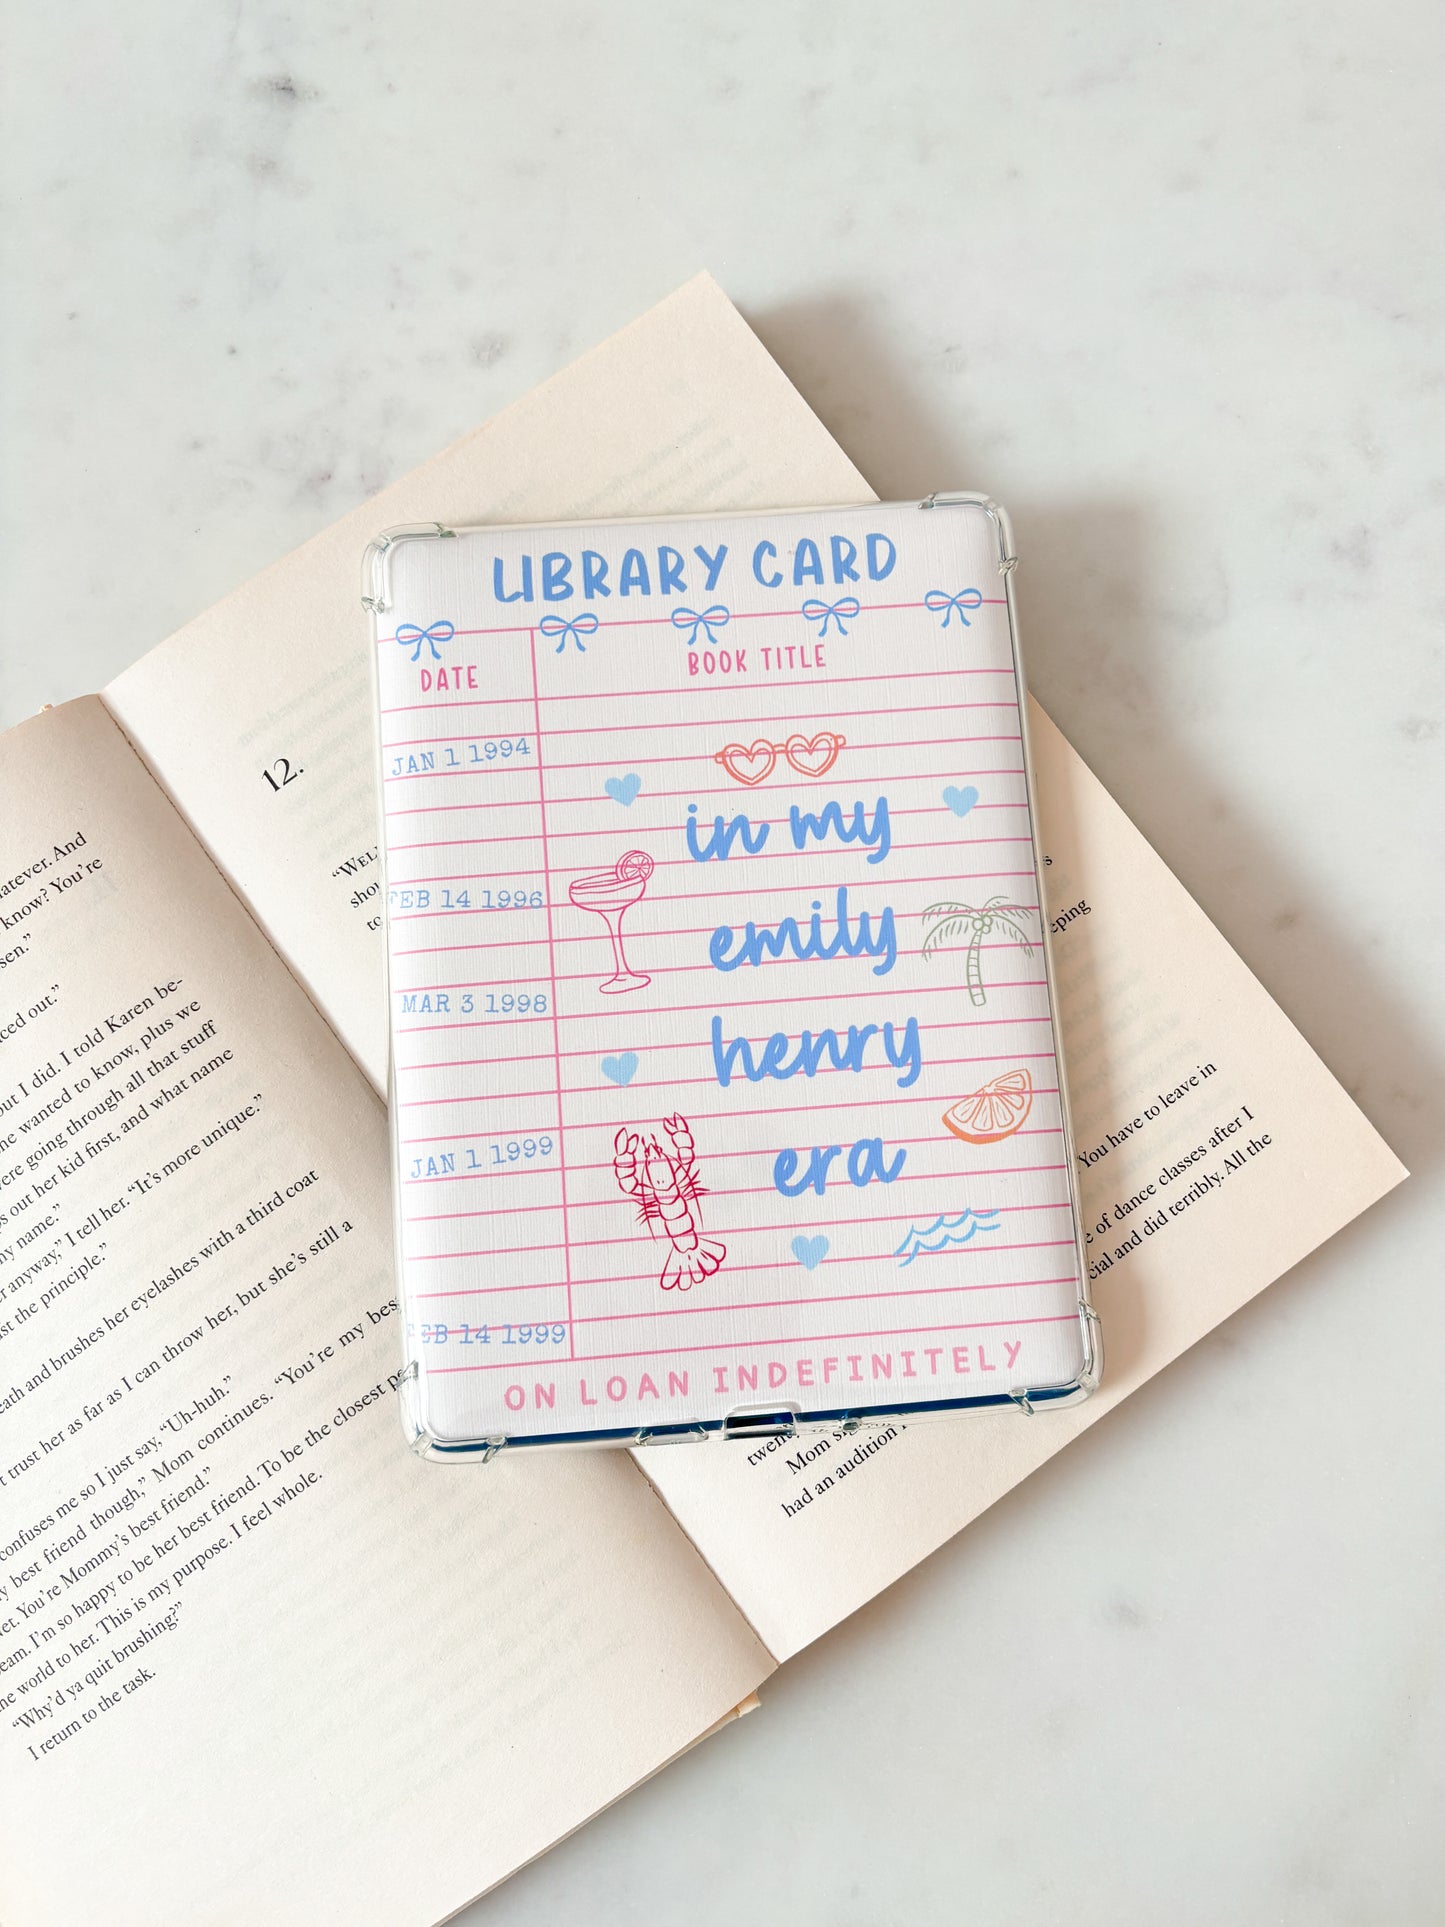 LIBRARY CARD
DATE
BOOK TITLE
JAN 1 1994
FEB 14 1996
MAR 3 1998
JAN 1 1999
FEB 14 1999
in my
emily
henry
era
ON LOAN INDEFINITELY
atever. And
know? You're
sen."
ced out."
out I did. I told Karen be-
he wanted to know, plus we
ere going through all that stuff
s out her kid first, and what name
my name."
r anyway," I tell her. "It's more unique."
st the principle."
eath and brushes her eyelashes with a third coat
t trust her as far as I can throw her, but she's still a
confuses me so I just say, "Uh-huh."
y best friend though," Mom continues. "You're my bes
et. You're Mommy's best friend."
eam. I'm so happy to be her best friend. To be the closest p
he world to her. This is my purpose. I feel whole.
"Why'd ya quit brushing?"
I return to the task.
12.
"WEL
shou
to
s
eping
You have to leave in
e of dance classes after I
cial and did terribly. All the
twenty
Mom s
had an audition